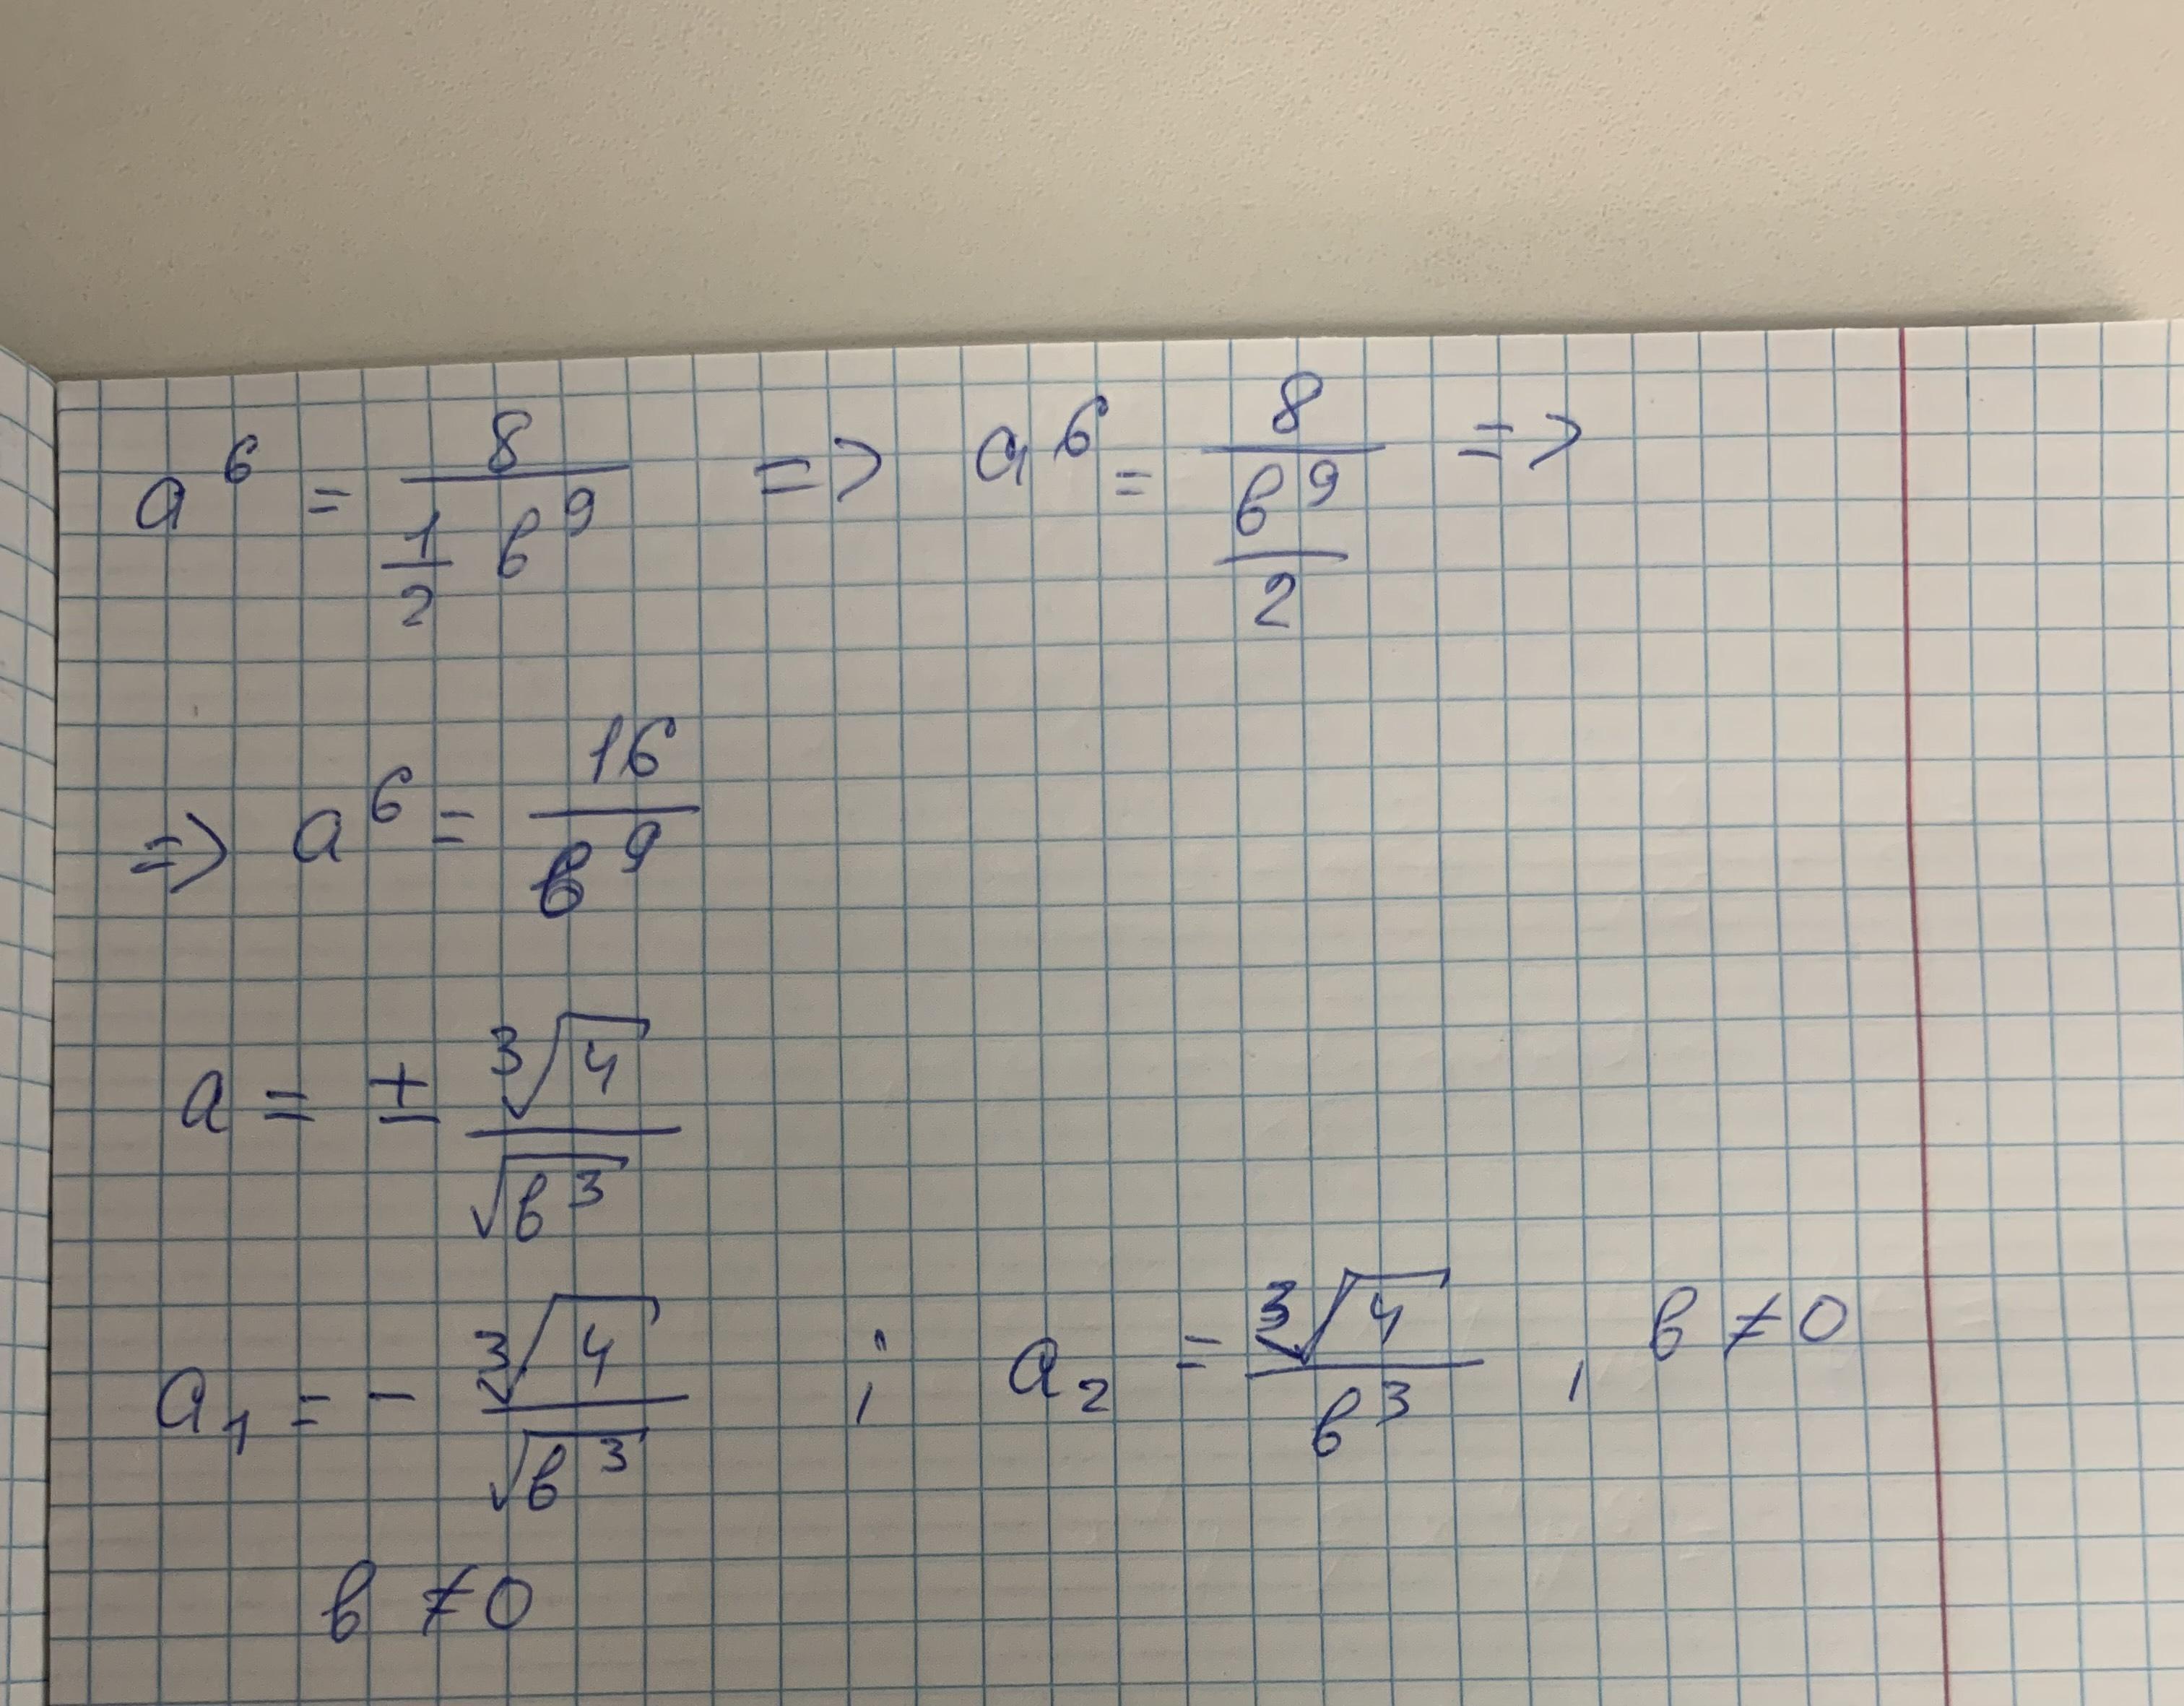 a⁶ = 8/(1/2 b⁹) => a⁶ = 8/(b⁹/2) =>
=> a⁶ = 16/b⁹
a = ± ³√4/√b³
a₁ = - ³√4/√b³ ; a₂ = ³√4/b³ , b ≠ 0
b ≠ 0